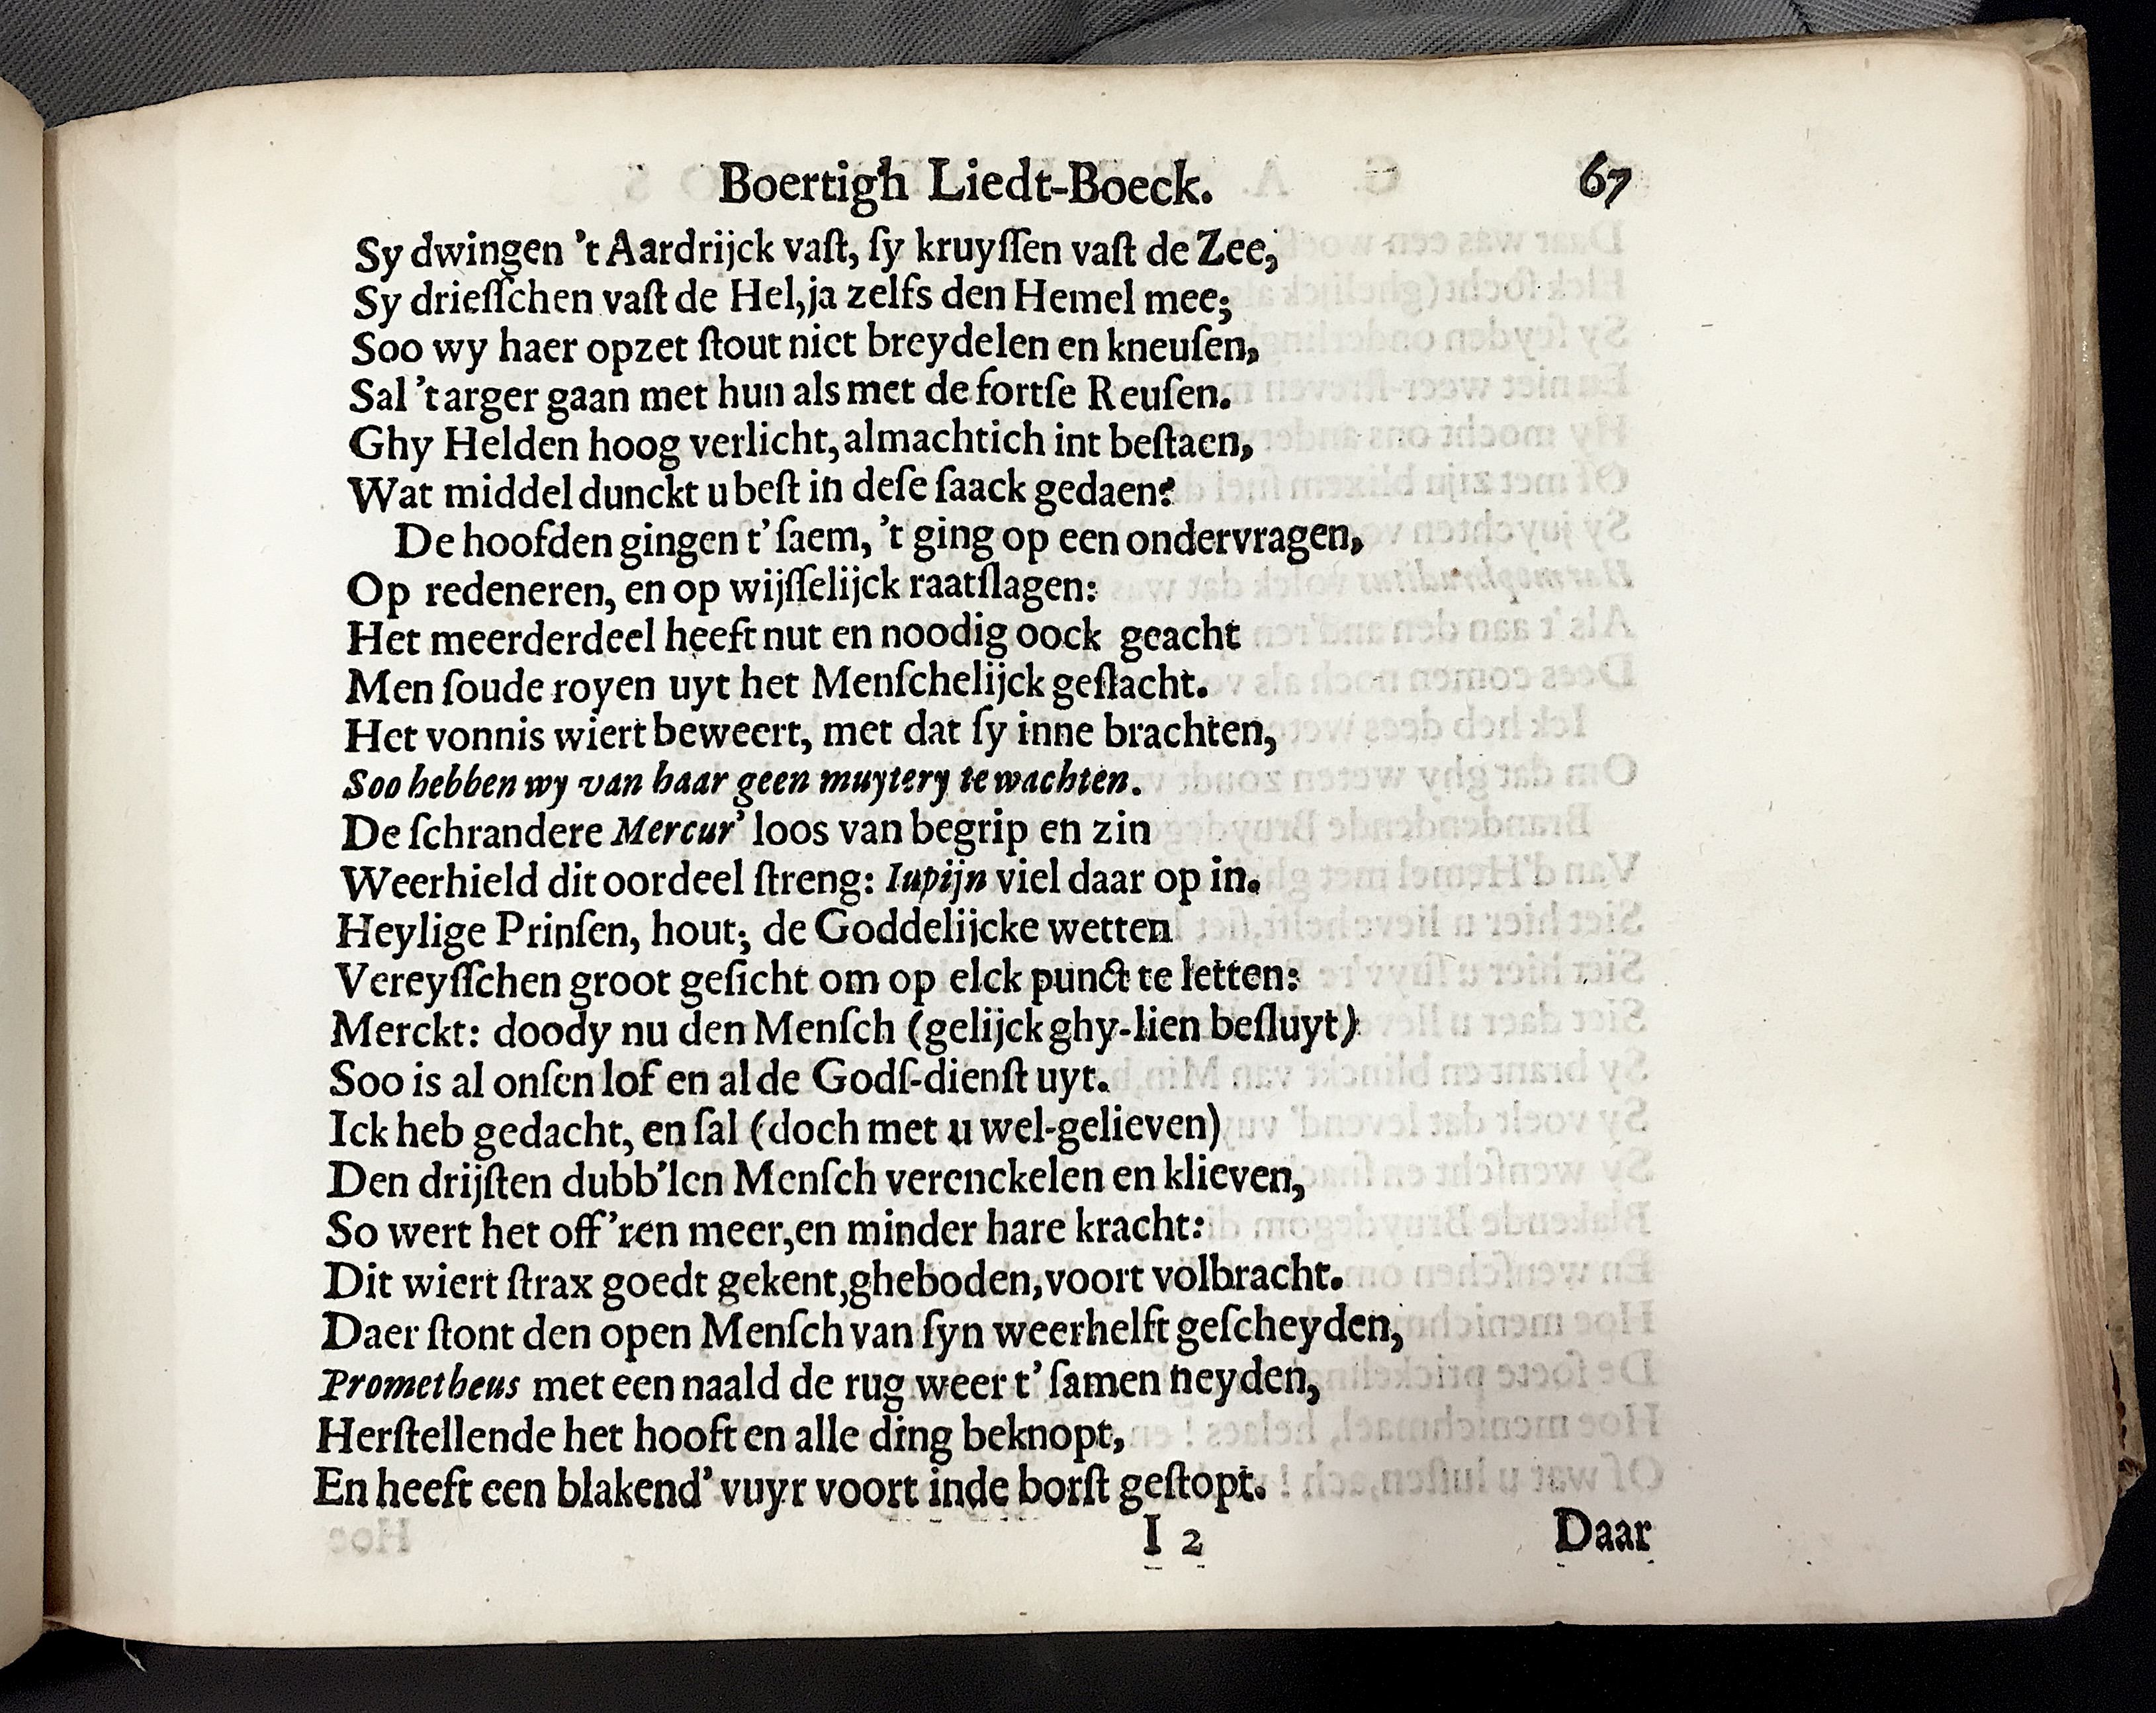 Boertigh Liedt-Boeck. 67
Sy dwingen 't Aardrijck vaſt, ſy kruyſſen vaſt de Zee,
Sy drieſſchen vaſt de Hel, ja zelfs den Hemel mee;
Soo wy haer opzet ſtout niet breydelen en kneuſen,
Sal 't arger gaan met hun als met de fortſe Reuſen.
Ghy Helden hoog verlicht, almachtich int beſtaen,
Wat middel dunckt u beſt in deſe ſaack gedaen?
De hoofden gingen t' ſaem, 't ging op een ondervragen,
Op redeneren, en op wijſſelijck raatſlagen:
Het meerderdeel heeft nut en noodig oock geacht
Men ſoude royen uyt het Menſchelijck geſlacht.
Het vonnis wiert beweert, met dat ſy inne brachten,
Soo hebben wy van haar geen muytery te wachten.
De ſchrandere Mercur' loos van begrip en zin
Weerhield dit oordeel ſtreng: Iupijn viel daar op in.
Heylige Prinſen, hout; de Goddelijcke wetten
Vereyſſchen groot geſicht om op elck punct te letten:
Merckt: doody nu den Menſch (gelijck ghy-lien beſluyt)
Soo is al onſen lof en al de Godſ-dienſt uyt.
Ick heb gedacht, en ſal (doch met u wel-gelieven)
Den drijſten dubb'len Menſch verenckelen en klieven,
So wert het off'ren meer, en minder hare kracht:
Dit wiert ſtrax goedt gekent, gheboden, voort volbracht.
Daer ſtont den open Menſch van ſyn weerhelft geſcheyden,
Prometheus met een naald de rug weer t' ſamen neyden,
Herſtellende het hooft en alle ding beknopt,
En heeft een blakend' vuyr voort inde borſt geſtopt.
I 2 Daar